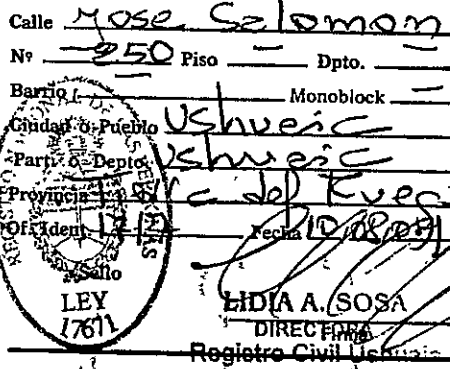 Calle Jose Salomon
Nº 250 Piso — Dpto.
Barrio — Monoblock —
Ciudad o Pueblo Ushuaia
Part. o Depto Ushuaia
Provincia del Fueg
Of. Ident. Fecha 10.08.
Sello
LEY
17671
LIDIA A. SOSA
DIRECTORA
Registro Civil Ushuaia